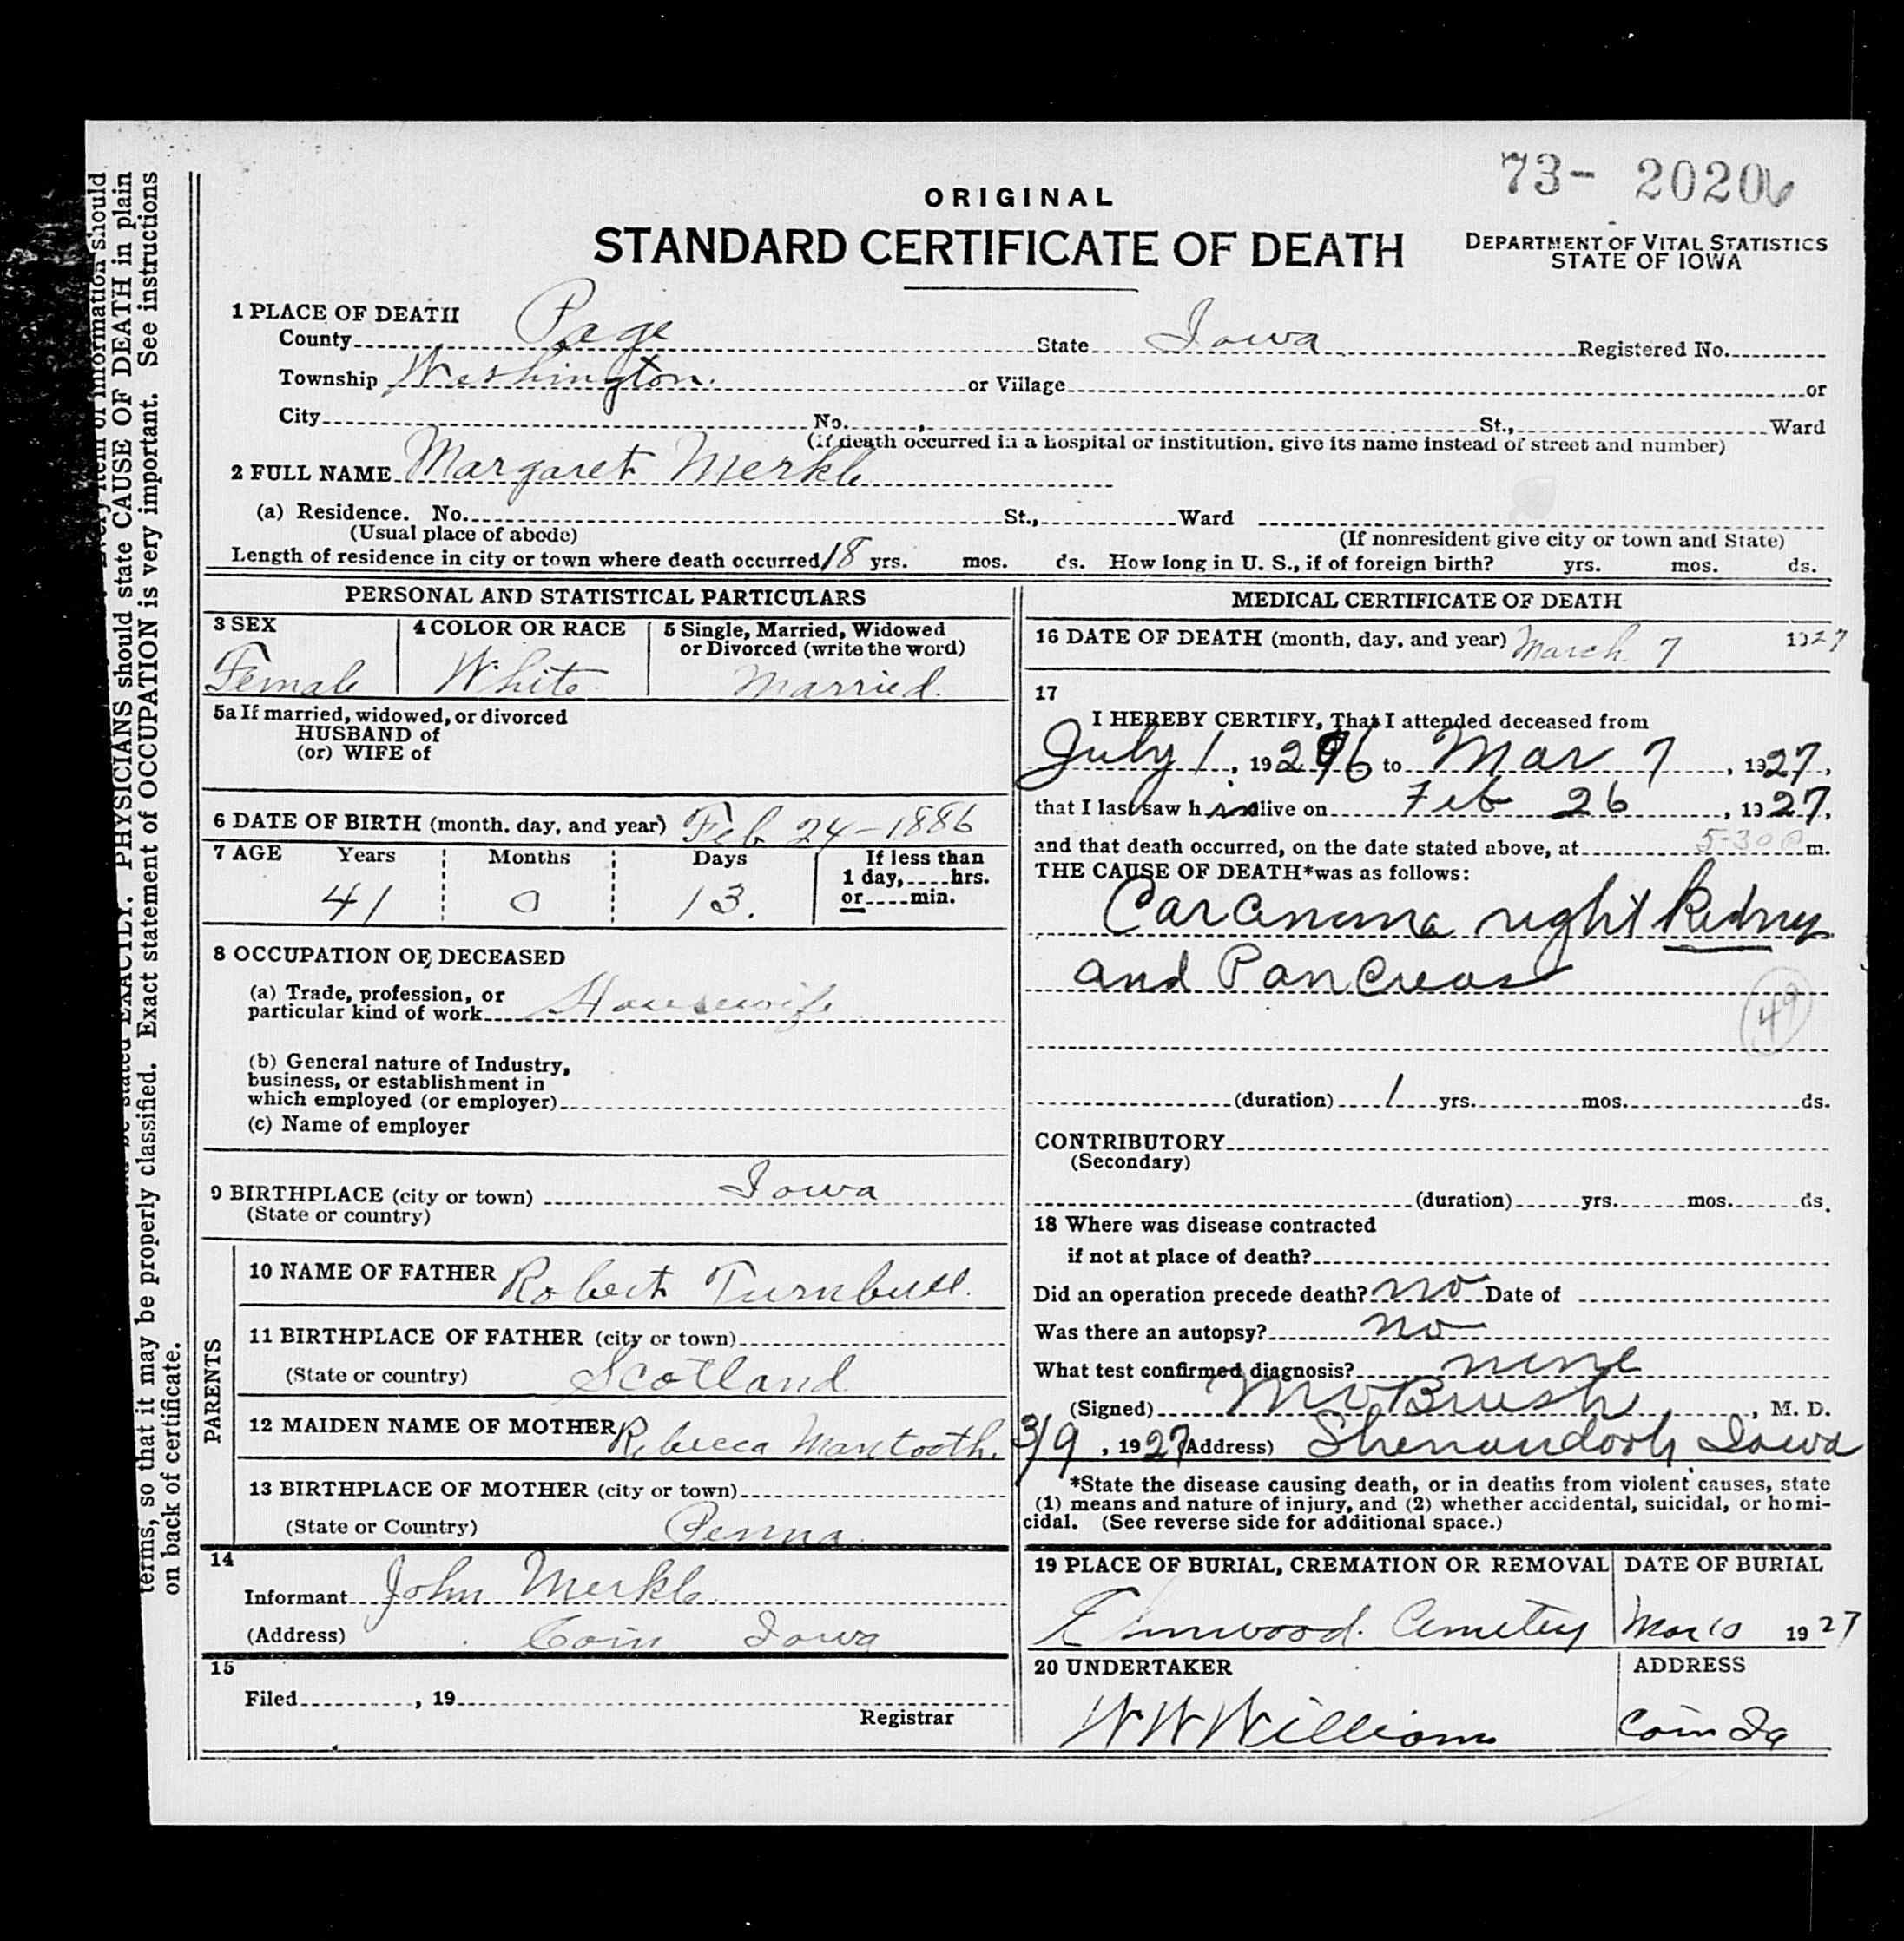 73- 20206
ORIGINAL
STANDARD CERTIFICATE OF DEATH
DEPARTMENT OF VITAL STATISTICS
STATE OF IOWA
1 PLACE OF DEATH
County Page State Iowa Registered No.
Township Washington. or Village or
City No. , St., Ward
(If death occurred in a hospital or institution, give its name instead of street and number)
2 FULL NAME Margaret Merkle
(a) Residence. No. St., Ward
(Usual place of abode) (If nonresident give city or town and State)
Length of residence in city or town where death occurred 18 yrs. mos. ds. How long in U. S., if of foreign birth? yrs. mos. ds.
PERSONAL AND STATISTICAL PARTICULARS
3 SEX 4 COLOR OR RACE 5 Single, Married, Widowed
or Divorced (write the word)
Female White Married.
5a If married, widowed, or divorced
HUSBAND of
(or) WIFE of
6 DATE OF BIRTH (month. day, and year) Feb 24-1886
7 AGE Years Months Days If less than
1 day, hrs.
or min.
41 0 13.
8 OCCUPATION OF DECEASED
(a) Trade, profession, or
particular kind of work Housewife
(b) General nature of Industry,
business, or establishment in
which employed (or employer)
(c) Name of employer
9 BIRTHPLACE (city or town) Iowa
(State or country)
PARENTS
10 NAME OF FATHER Robert Turnbull.
11 BIRTHPLACE OF FATHER (city or town)
(State or country) Scotland
12 MAIDEN NAME OF MOTHER Rebecca Mantooth.
13 BIRTHPLACE OF MOTHER (city or town)
(State or Country) Penna.
14
Informant John Merkle
(Address) Coin Iowa
15
Filed , 19
Registrar
MEDICAL CERTIFICATE OF DEATH
16 DATE OF DEATH (month, day, and year) March 7 1927
17
I HEREBY CERTIFY, That I attended deceased from
July 1, 1926 to Mar 7, 1927,
that I last saw h alive on Feb 26, 1927,
and that death occurred, on the date stated above, at 5-30 P m.
THE CAUSE OF DEATH*was as follows:
Carcanoma right Kidney
and Pancreas
49
(duration) 1 yrs. mos. ds.
CONTRIBUTORY
(Secondary)
(duration) yrs. mos. ds.
18 Where was disease contracted
if not at place of death?
Did an operation precede death? no Date of
Was there an autopsy? no
What test confirmed diagnosis? none
(Signed) M V Brush, M. D.
3/9, 1927 (Address) Shenandoah Iowa
*State the disease causing death, or in deaths from violent causes, state
(1) means and nature of injury, and (2) whether accidental, suicidal, or homi-
cidal. (See reverse side for additional space.)
19 PLACE OF BURIAL, CREMATION OR REMOVAL DATE OF BURIAL
Elmwood. Cemetery Mar 10 1927
20 UNDERTAKER ADDRESS
W W Williams Coin Ia
information should
be stated EXACTLY. PHYSICIANS should state CAUSE OF DEATH in plain
terms, so that it may be properly classified. Exact statement of OCCUPATION is very important. See instructions
on back of certificate.